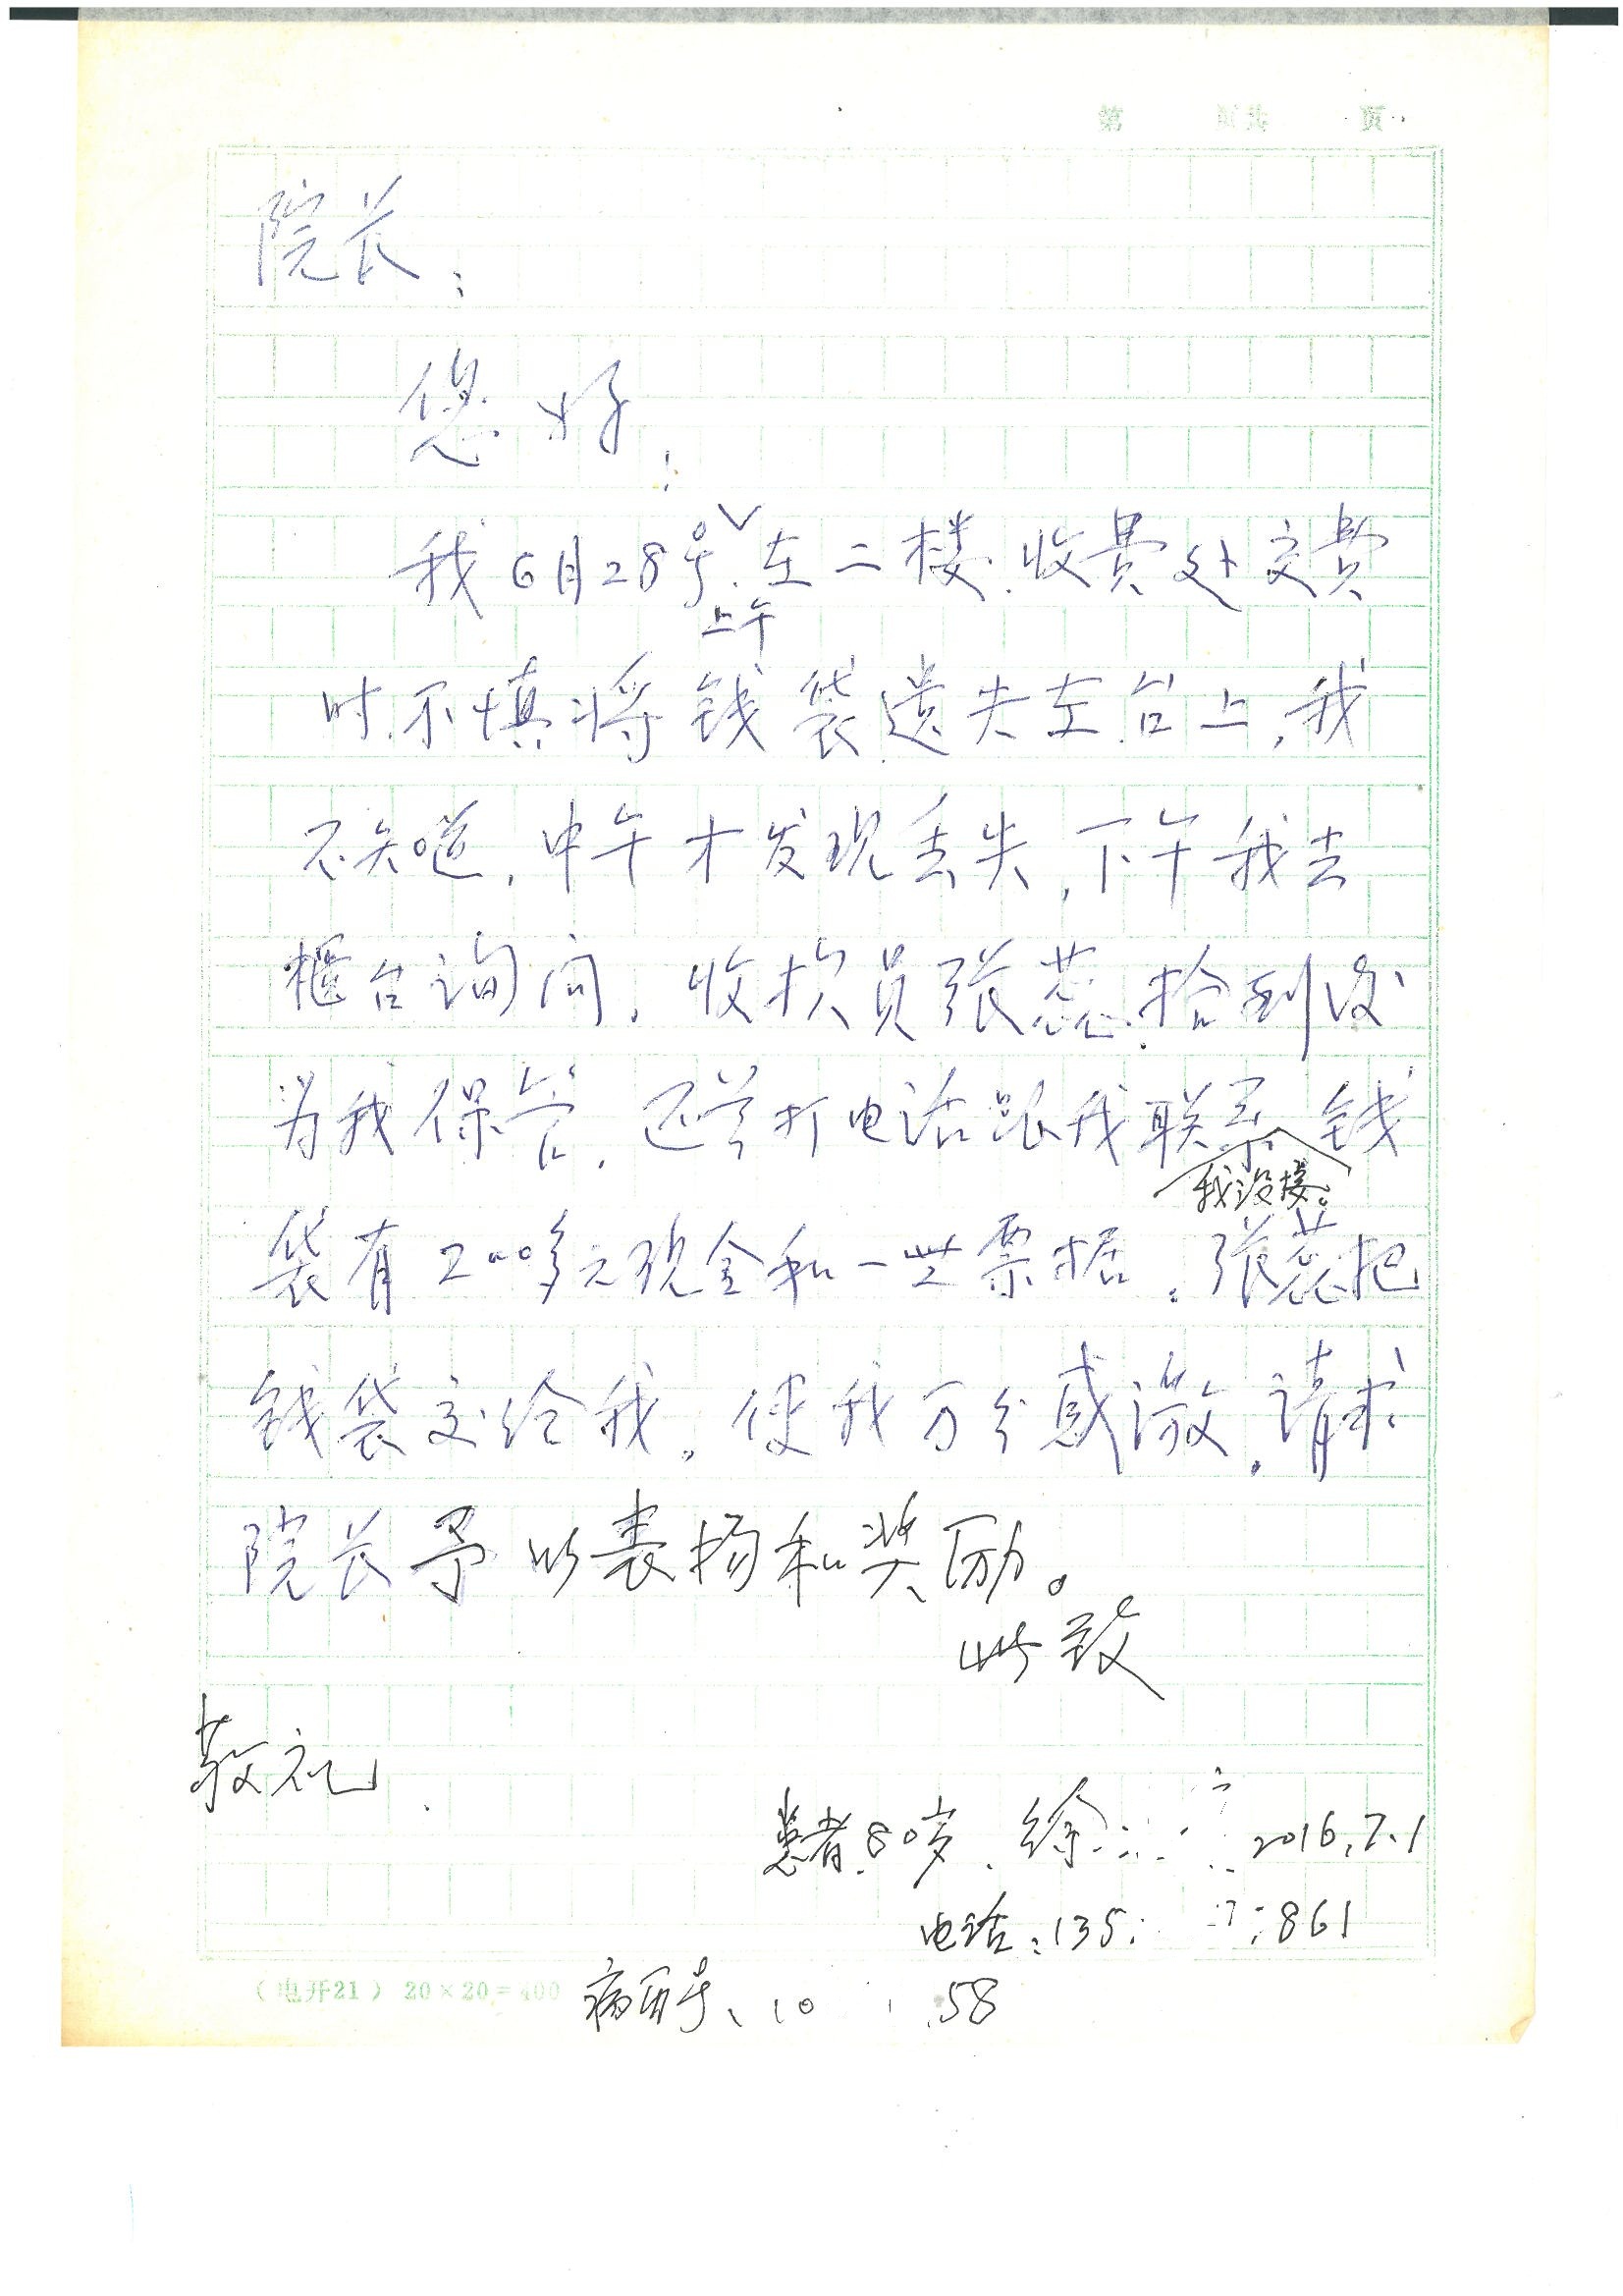 第 页共 页
院长：
您好！
我6月28号上午在二楼收费处交费
时不慎将钱袋遗失在台上，我
不知道，中午才发现丢失，下午我去
柜台询问，收款员张蕊拾到后
为我保管，还曾打电话跟我联系 钱
我没接。
袋有200多元现金和一些票据。张蕊把
钱袋交给我，使我万分感激，请求
院长予以表扬和奖励。
此致
敬礼
患者80岁 徐 2016.7.1
电话：135 861
(电开21) 20×20=400 病历号、10 58